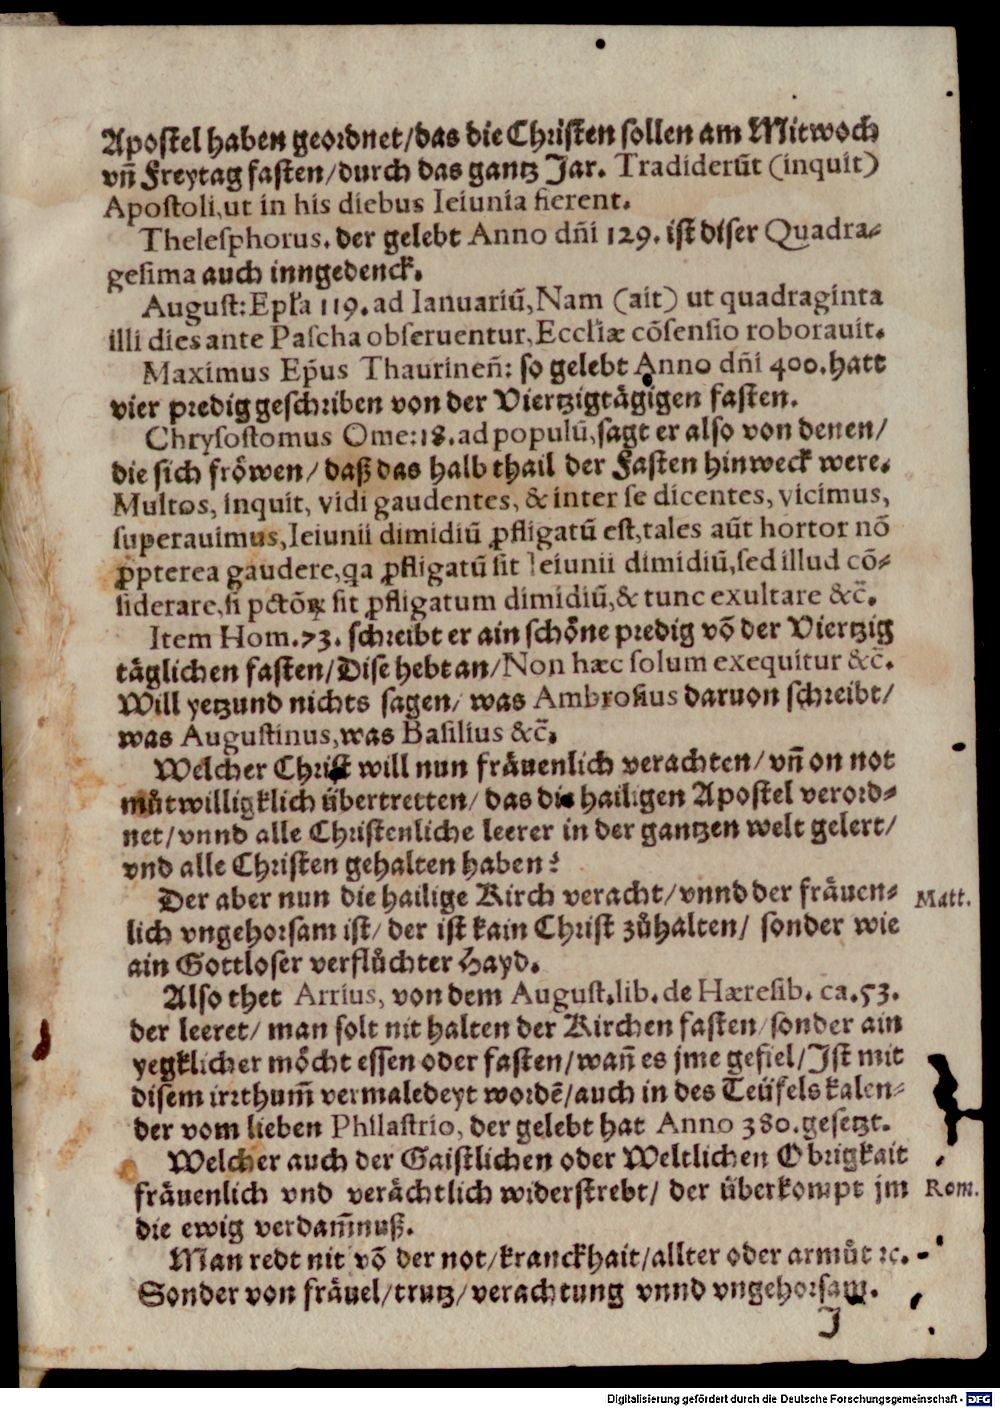 Apostel haben geordnet/das die Christen sollen am Mitwoch
vñ Freytag fasten/durch das gantz Jar. Tradiderūt (inquit)
Apostoli,ut in his diebus Ieiunia fierent.
Thelesphorus. der gelebt Anno dñi 129. ist diser Quadra-
gesima auch inngedenck.
August: Epl'a 119. ad Ianuariū, Nam (ait) ut quadraginta
illi dies ante Pascha obseruentur, Eccl'iæ cōsensio roborauit.
Maximus Ep̃us Thaurineñ: so gelebt Anno dñi 400. hatt
vier predig geschriben von der Viertzigtägigen fasten.
Chrysostomus Ome:18. ad populū, sagt er also von denen/
die sich fröwen/ daß das halb thail der Fasten hinweck were.
Multos, inquit, vidi gaudentes, & inter se dicentes, vicimus,
superauimus, Ieiunii dimidiū ꝓfligatū est, tales aūt hortor nō
ꝓpterea gaudere, qa ꝓfligatū sit Ieiunii dimidiū, sed illud cō-
siderare, si pctōꝝ sit ꝓfligatum dimidiū,& tunc exultare &c̃.
Item Hom.73. schreibt er ain schöne predig vō der Viertzig
täglichen fasten/Dise hebt an/Non hæc solum exequitur &c̃.
Will yetzund nichts sagen/ was Ambrosius daruon schreibt/
was Augustinus, was Basilius &c̃.
Welcher Christ will nun fräuenlich verachten/ vñ on not
můtwilligklich übertretten/ das die hailigen Apostel verord-
net/vnnd alle Christenliche leerer in der gantzen welt gelert/
vnd alle Christen gehalten haben?
Der aber nun die hailige Kirch veracht/vnnd der fräuen-
Matt.
lich vngehorsam ist/ der ist kain Christ zůhalten/ sonder wie
ain Gottloser verflůchter Hayd.
Also thet Arrius, von dem August. lib. de Hæresib. ca.53.
der leeret/ man solt nit halten der Kirchen fasten/sonder ain
yegklicher möcht essen oder fasten/wañ es jme gefiel/Ist mit
disem irrthum̃ vermaledeyt wordē/auch in des Teüfels kalen-
der vom lieben Philastrio, der gelebt hat Anno 380. gesetzt.
Welcher auch der Gaistlichen oder Weltlichen Obrigkait
fräuenlich vnd verächtlich widerstrebt/ der überkompt jm
Rom.
die ewig verdam̃nuß.
Man redt nit vō der not/kranckhait/allter oder armůt ꝛc.
Sonder von fräuel/trutz/verachtung vnnd vngehorsam.
J
Digitalisierung gefördert durch die Deutsche Forschungsgemeinschaft - DFG